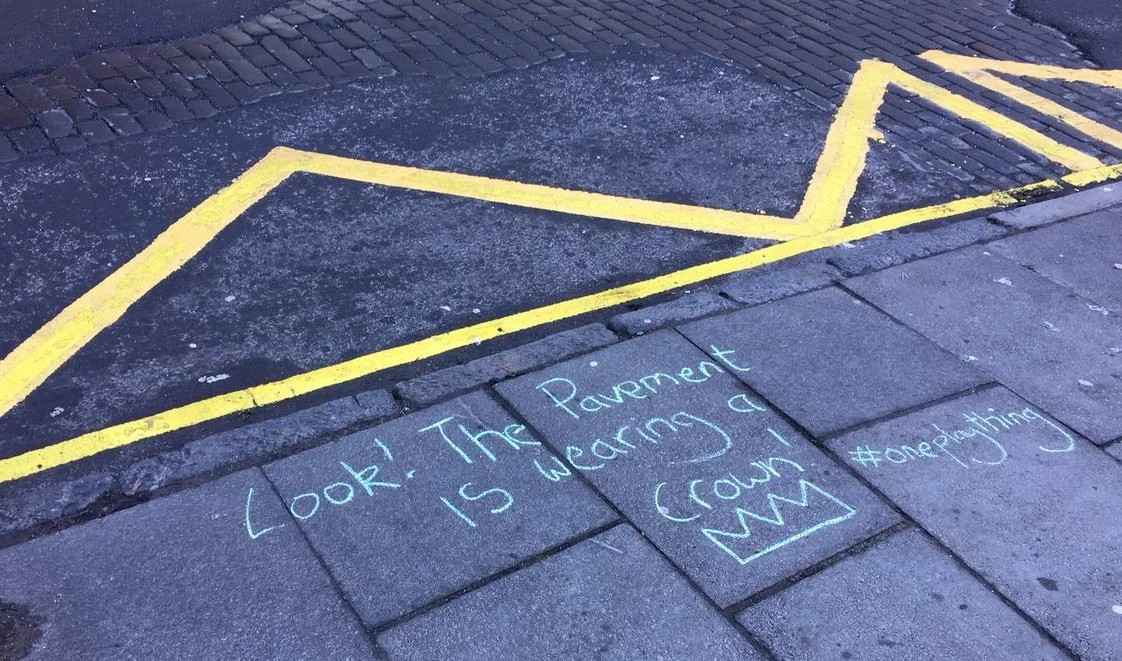 Look! The Pavement
is wearing a
crown!
#oneplaything